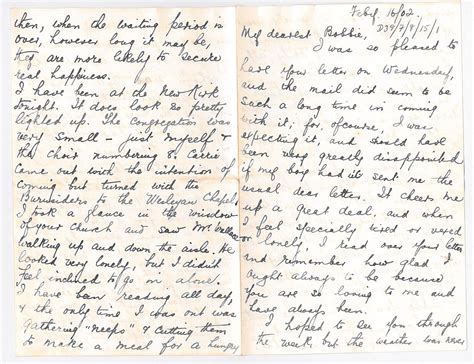 then, when the waiting period is
over, however long it may be,
they are more likely to secure
real happiness.
I have been at the New Kirk
tonight. It does look so pretty
lighted up. The congregation was
very small – just myself &
the choir numbering 8. Carrie
came out with the intention of
coming but turned with the
Burnsiders to the Wesleyan Chapel
I took a glance in the window
of your Church and saw Mr. Wallace
walking up and down the aisle. He
looked very lonely, but I didn't
feel inclined to go in alone.
I have been reading all day,
& the only time I was out was
gathering "neeps" & cutting them
to make a meal for a hungry
Feby. 16/02.
D39/7/9/15/1
My dearest Bobbie,
I was so pleased to
have your letter on Wednesday,
and the mail did seem to be
such a long time in coming
with it; for, of course, I was
expecting it, and should have
been very greatly disappointed
if my boy had'nt sent me the
usual dear letter. It cheers me
up a great deal, and when
I feel specially tired or vexed
or lonely, I read over your letter
and remember how glad I
ought always to be because
you are so loving to me and
have always been.
I hoped to see you through
the week but the weather was